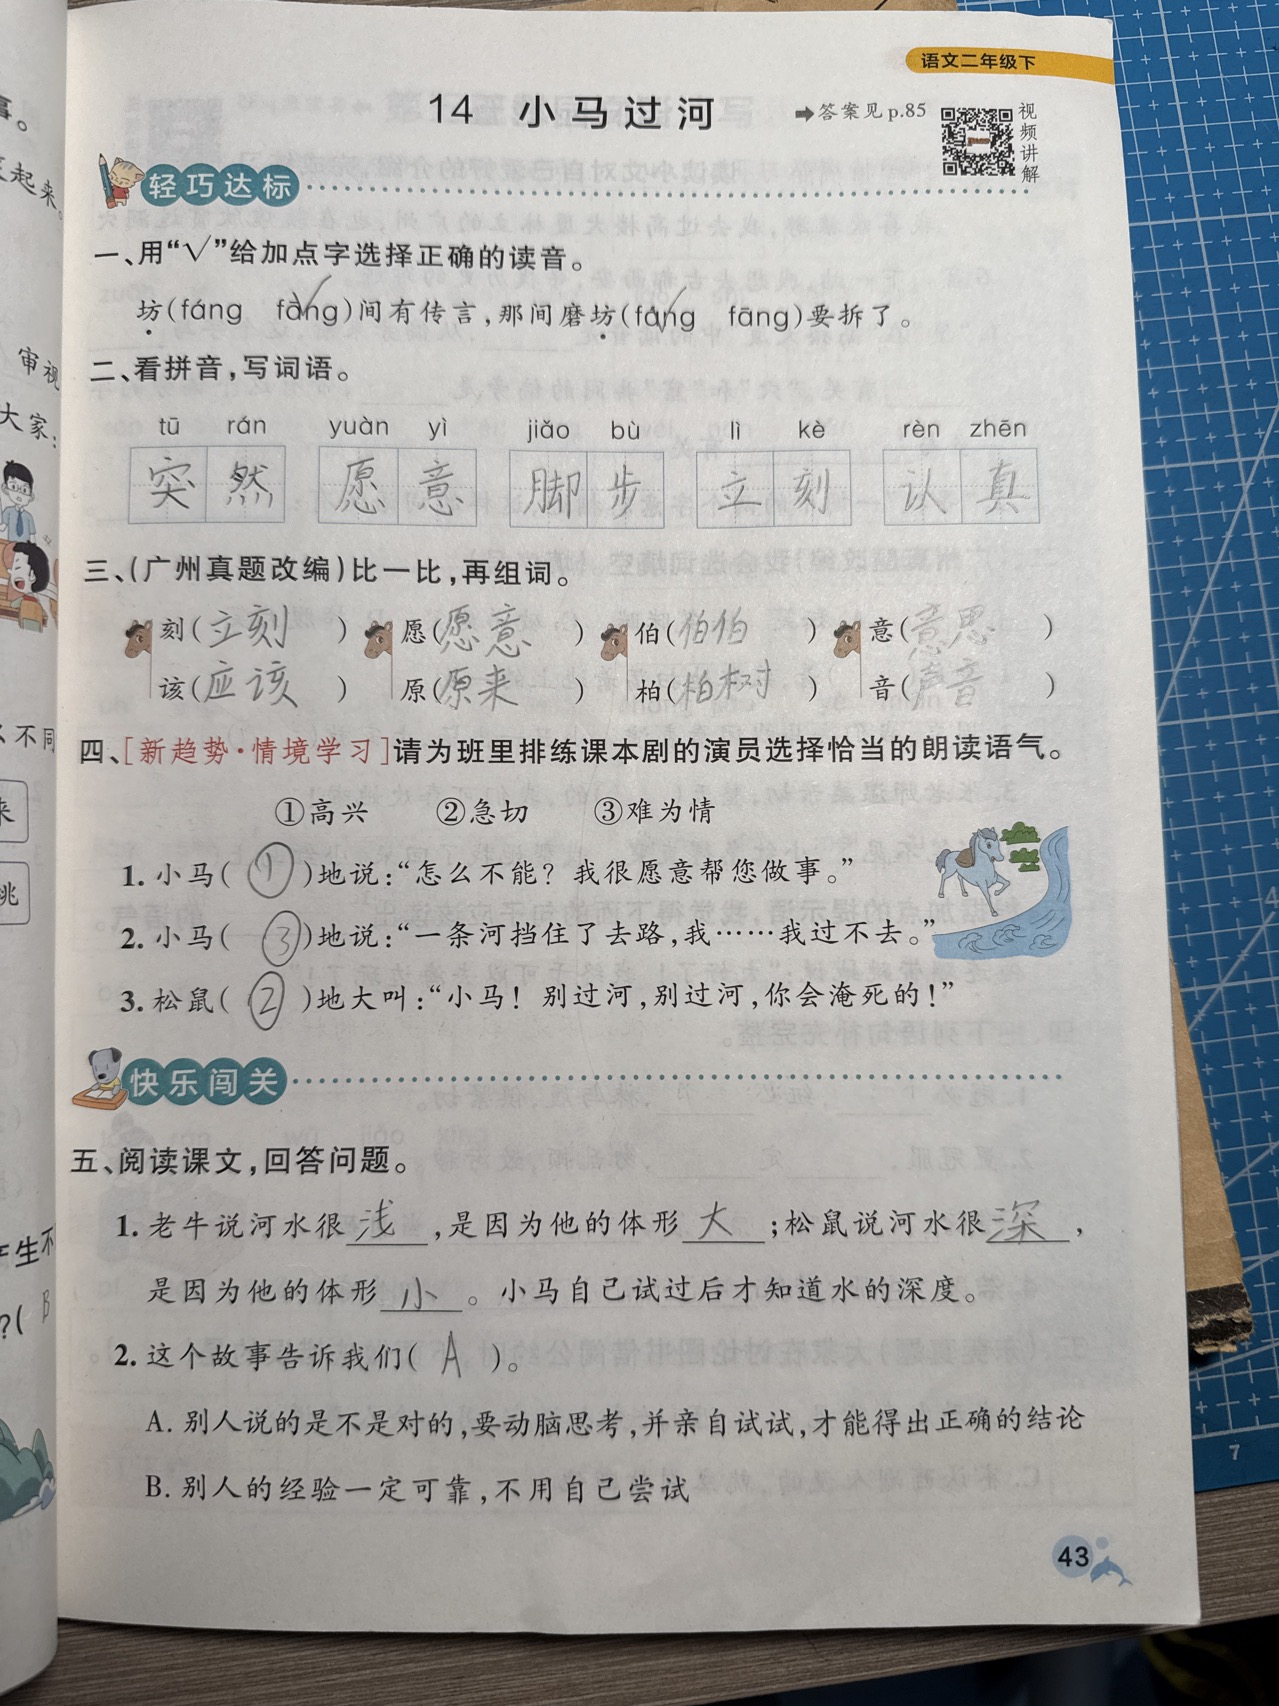 语文二年级下
14 小马过河
➡答案见 p.85
视频讲解
轻巧达标
一、用“√”给加点字选择正确的读音。
坊(fáng fāng√)间有传言,那间磨坊(fáng√ fāng)要拆了。
二、看拼音,写词语。
tū rán yuàn yì jiǎo bù lì kè rèn zhēn
突然 愿意 脚步 立刻 认真
三、(广州真题改编)比一比,再组词。
刻(立刻) 愿(愿意) 伯(伯伯) 意(意思)
该(应该) 原(原来) 柏(柏树) 音(声音)
四、[新趋势·情境学习]请为班里排练课本剧的演员选择恰当的朗读语气。
①高兴 ②急切 ③难为情
1. 小马(①)地说:“怎么不能?我很愿意帮您做事。”
2. 小马(③)地说:“一条河挡住了去路,我……我过不去。”
3. 松鼠(②)地大叫:“小马!别过河,别过河,你会淹死的!”
快乐闯关
五、阅读课文,回答问题。
1. 老牛说河水很浅,是因为他的体形大;松鼠说河水很深,
是因为他的体形小。小马自己试过后才知道水的深度。
2. 这个故事告诉我们(A)。
A. 别人说的是不是对的,要动脑思考,并亲自试试,才能得出正确的结论
B. 别人的经验一定可靠,不用自己尝试
43
事。
起来。
审视
大家:
不同
来
桃
生不
?( B
7